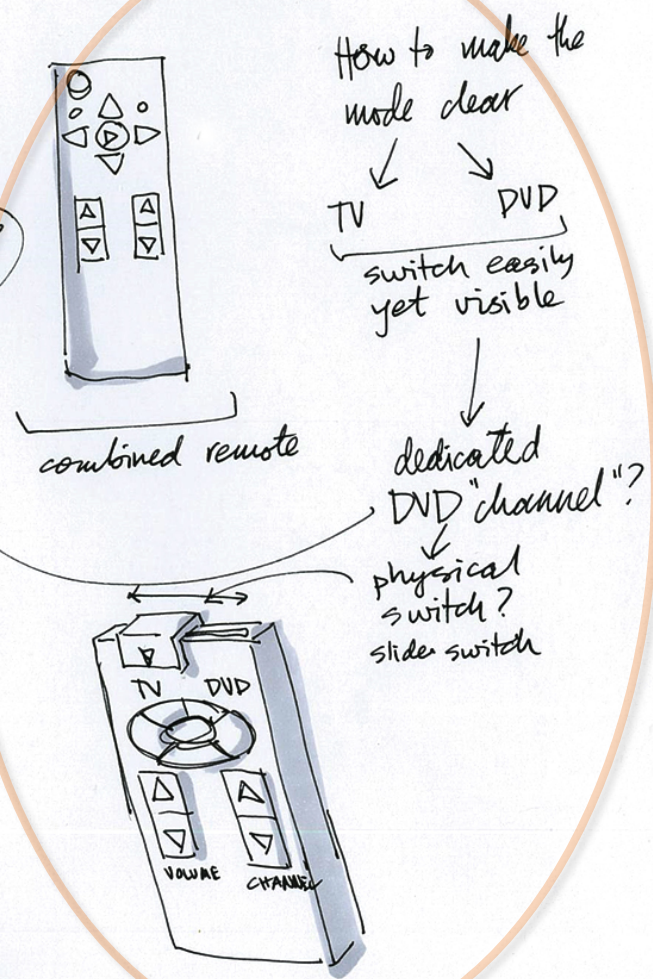 How to make the
mode clear
TV DVD
switch easily
yet visible
combined remote
dedicated
DVD "channel"?
physical
switch?
slider switch
TV DVD
VOLUME CHANNEL